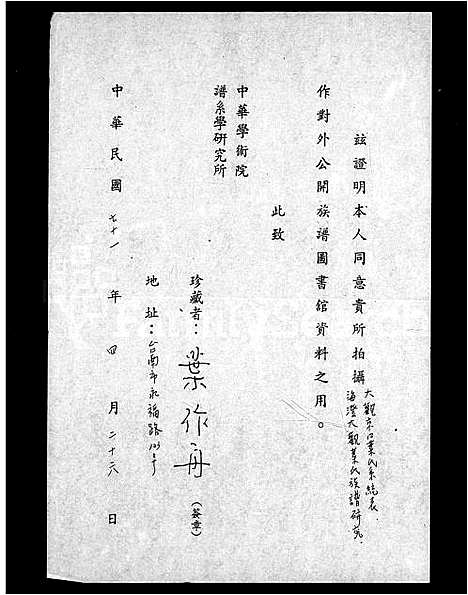 茲證明本人同意貴所拍攝大觀京口葉氏系統表.海澄大觀葉氏族譜研究.
作對外公開族譜圖書館資料之用。
此致
中華學術院
譜系學研究所
珍藏者：葉作舟（簽章）
地址：台南市永福路
中華民國七十一年四月二十六日